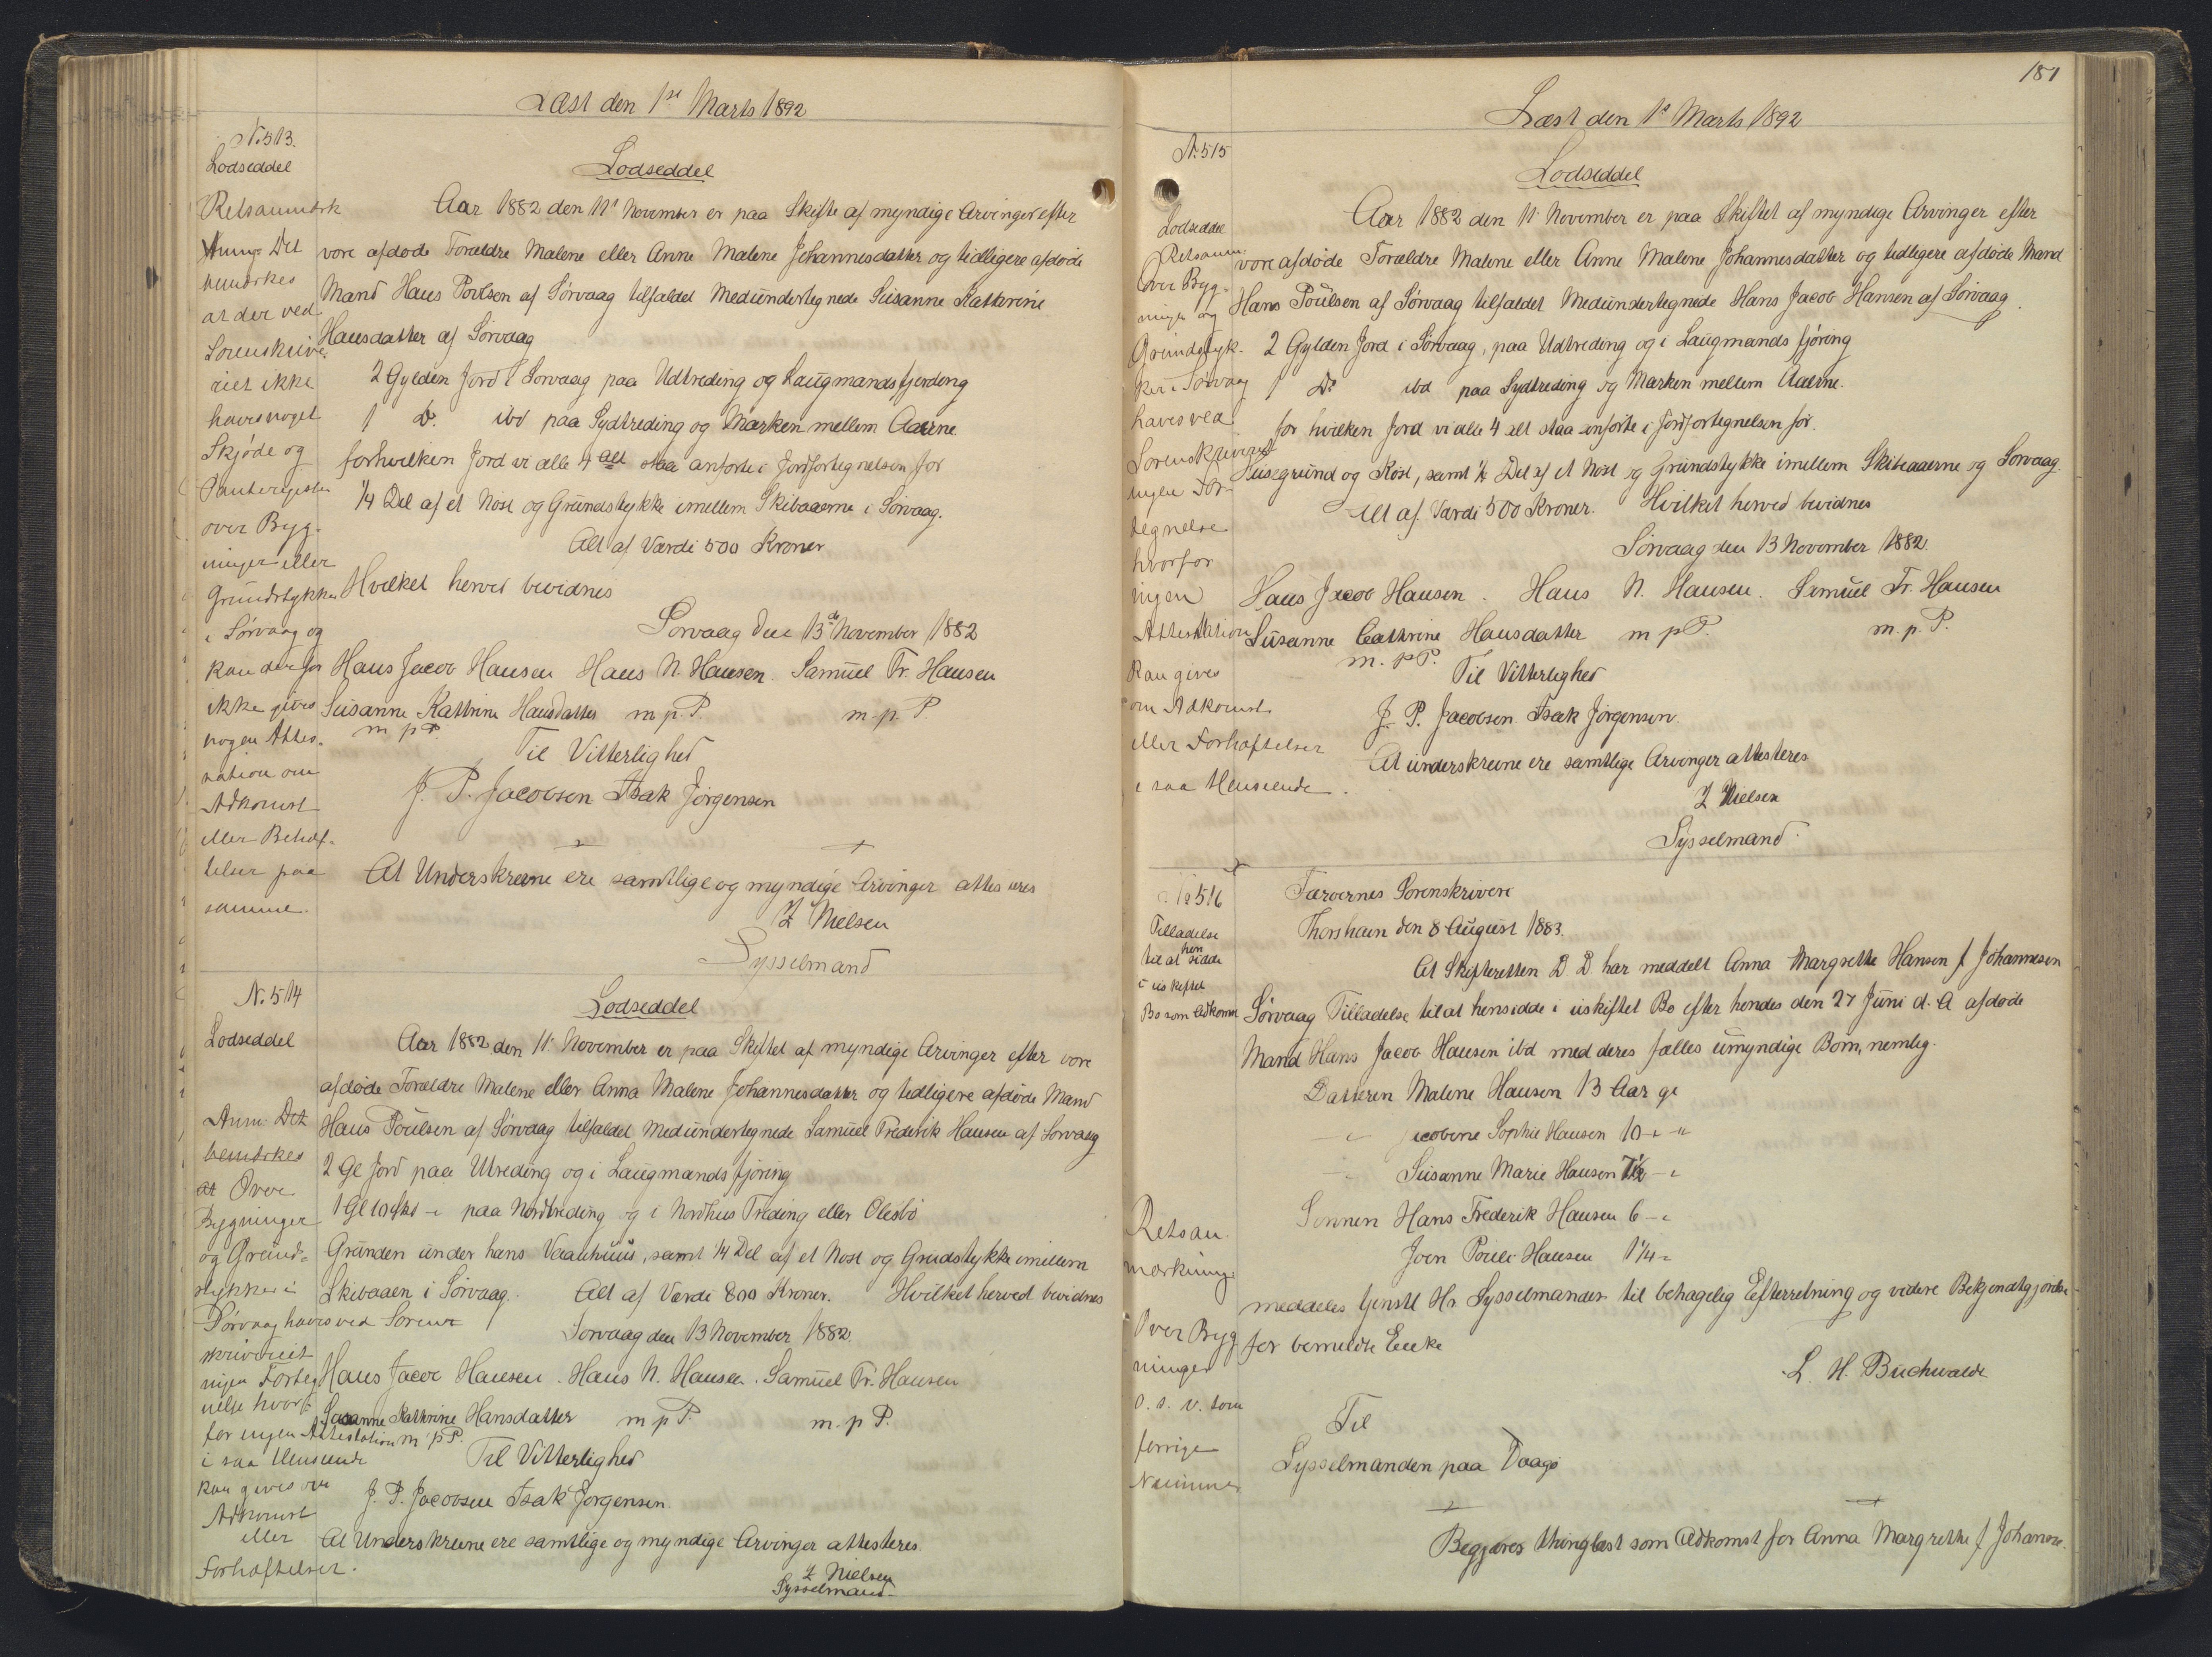 Læst den 1ste Marts 1892
N. 513.
Lodseddel
Retsanmærk
Anmg. Det
bemærkes
at der ved
Sorenskrive-
riet ikke
haves noget
Skjøde og
Panteregister
over Byg-
ninger eller
Grundstykker
i Sörvaag og
kan derfor
ikke gives
nogen Attes-
tation om
Adkomst
eller Behæf-
telser paa
samme.
Lodseddel
Aar 1882 den 11' November er paa Skifte af myndige Arvinger efter
vore afdøde Forældre Malene eller Anne Malene Johannesdatter og tidligere afdøde
Mand Hans Poulsen af Sörvaag tilfaldet Medundertegnede Susanne Kathrine
Hansdatter af Sörvaag
2 Gylden Jord i Sorvaag paa Udtreding og Laugmandsfjerding
1 Do. ibd paa Sydtreding og Marken mellem Aaerne.
forhvilken Jord vi alle 4 all staa anførte i Jordfortegnelsen for
1/4 Del af et Nost og Grundstykke imellem Skibaaerne i Sörvaag.
Alt af Værdi 500 Kroner
Hvilket herved bevidnes
Sorvaag den 13de November 1882
Hans Jacob Hansen Hans N. Hansen. Samuel Fr. Hansen
Susanne Kathrine Hansdatter m. p. P. m. p. P.
m. p. P.
Til Vitterlighed
J. P. Jacobsen Isak Jörgensen
At Underskrevne ere samtlige og myndige Arvinger attesteres
Z Nielsen
Sysselmand
N. 514
Lodseddel
Anm. Det
bemærkes
at Over
Bygninger
og Grund-
stykker i
Sörvaag haves ved Soren
skriveriet
ingen Forteg
nelse hvor-
for ingen Attestation
i saa Henseende
kan gives om
Adkomst
eller
Forhæftelser.
Lodseddel
Aar 1882 den 11. November er paa Skiftet af myndige Arvinger efter vore
afdøde Forældre Malene eller Anna Malene Johannesdatter og tidligere afdøde Mand
Hans Poulsen af Sörvaag tilfaldet medundertegnede Samuel Frederik Hansen af Sorvaag
2 Gl Jord paa Utreding og i Laugmands fjöring
1 Gl 10 Skd - paa Nordtreding og i Nordhus Treding eller Olesbö
Grunden under hans Vaanhuus, samt 1/4 Del af et Nost og Grudstykke imellem
Skibaaen i Sörvaag. Alt af Værdi 800 Kroner. Hvilket herved bevidnes
Sorvaag den 13 November 1882
Hans Jacob Hansen. Hans N. Hansen. Samuel Fr. Hansen
Susanne Kathrine Hansdatter m p P. m. p P.
m p P.
Til Vitterlighed
J. P. Jacobsen Isak Jorgensen.
At Underskrevne ere samtlige og myndige Arvinger attesteres.
Z Nielsen
Sysselmand
181
Læst den 1ste Marts 1892
N. 515
Lodseddel
Retsanm.
Over Byg-
ninger og
Grundstyk-
ker i Sörvaag
haves ved
Sorenskriveriet
ingen For-
tegnelse
hvorfor
ingen
Attestation
kan gives
om Adkomst
eller Forhæftelser
i saa Henseende.
Lodseddel
Aar 1882 den 11. November er paa Skiftet af myndige Arvinger efter
vore afdøde Forældre Malene eller Anne Malene Johannesdatter og tidligere afdøde Mand
Hans Poulsen af Sörvaag tilfaldet Medundertegnede Hans Jacob Hansen af Sörvaag.
2 Gylden Jord i Sorvaag, paa Udtreding og i Laugmands fjöring
1 Do ibd paa Sydtreding og Marken mellem Aaerne.
for hvilken Jord vi alle 4 alt staa anførte i Jordfortegnelsen for.
Husegrund og Kost, samt 1/4 Del af et Nost og Grundstykke imellem Skibaaerne og Sorvaag.
Alt af Værdi 500 Kroner. Hvilket herved bevidnes
Sörvaag den 13 November 1882.
Hans Jacob Hansen. Hans N. Hansen. Samuel Fr. Hansen
Susanne Cathrine Hansdatter m p P. m. p. P.
m. p P.
Til Vitterlighed
J. P. Jacobsen. Isak Jörgensen.
At underskrevne ere samtlige Arvinger attesteres
Z Nielsen
Sysselmand.
No 516
Tilladelse
til at hen
sidde
i uskiftet
Bo som Adkomst
Retsan-
mærkning
Over Byg
ninger
o. s. v. som
forrige
Nummer
Færøernes Sorenskriveri
Thorshavn den 8 August 1883.
At Skifteretten D. D. har meddelt Anna Margrethe Hansen f Johannesen
Sørvaag Tilladelse til at hensidde i uskiftet Bo efter hendes den 27 Juni d. A afdøde
Mand Hans Jacob Hansen ibd med deres fælles umyndige Børn, nemlig.
Datteren Malene Hansen 13 Aar gl
" Jacobine Sophie Hansen 10 - "
" Susanne Marie Hansen 7½ - "
Sønnen Hans Frederik Hansen 6 - "
Joen Poule Hansen 1¼ -
meddeles tjenstl Hr. Sysselmanden til behagelig Efterretning og videre Bekjendtgjørelse
for bemeldte Enke
L. H. Buchwaldt
Til
Sysselmanden paa Vaagø
Begjæres thinglæst som Adkomst for Anna Margrethe f Johannes.